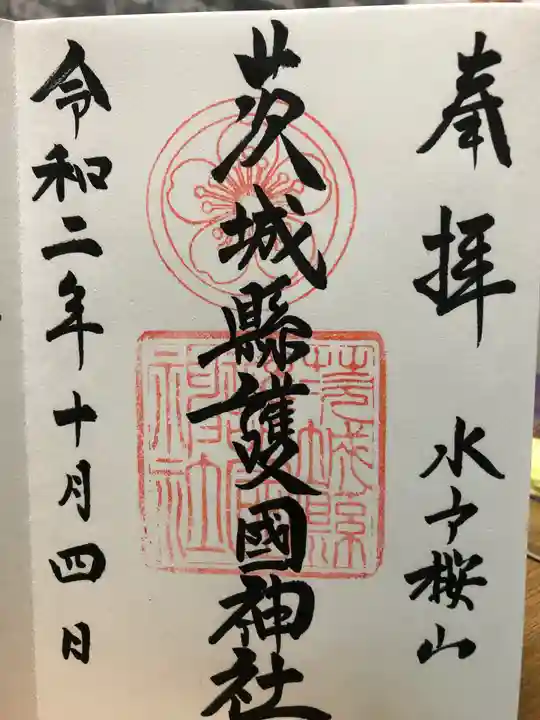 奉拝
水戸桜山
茨城縣護國神社
茨城縣護國神社
令和二年十月四日